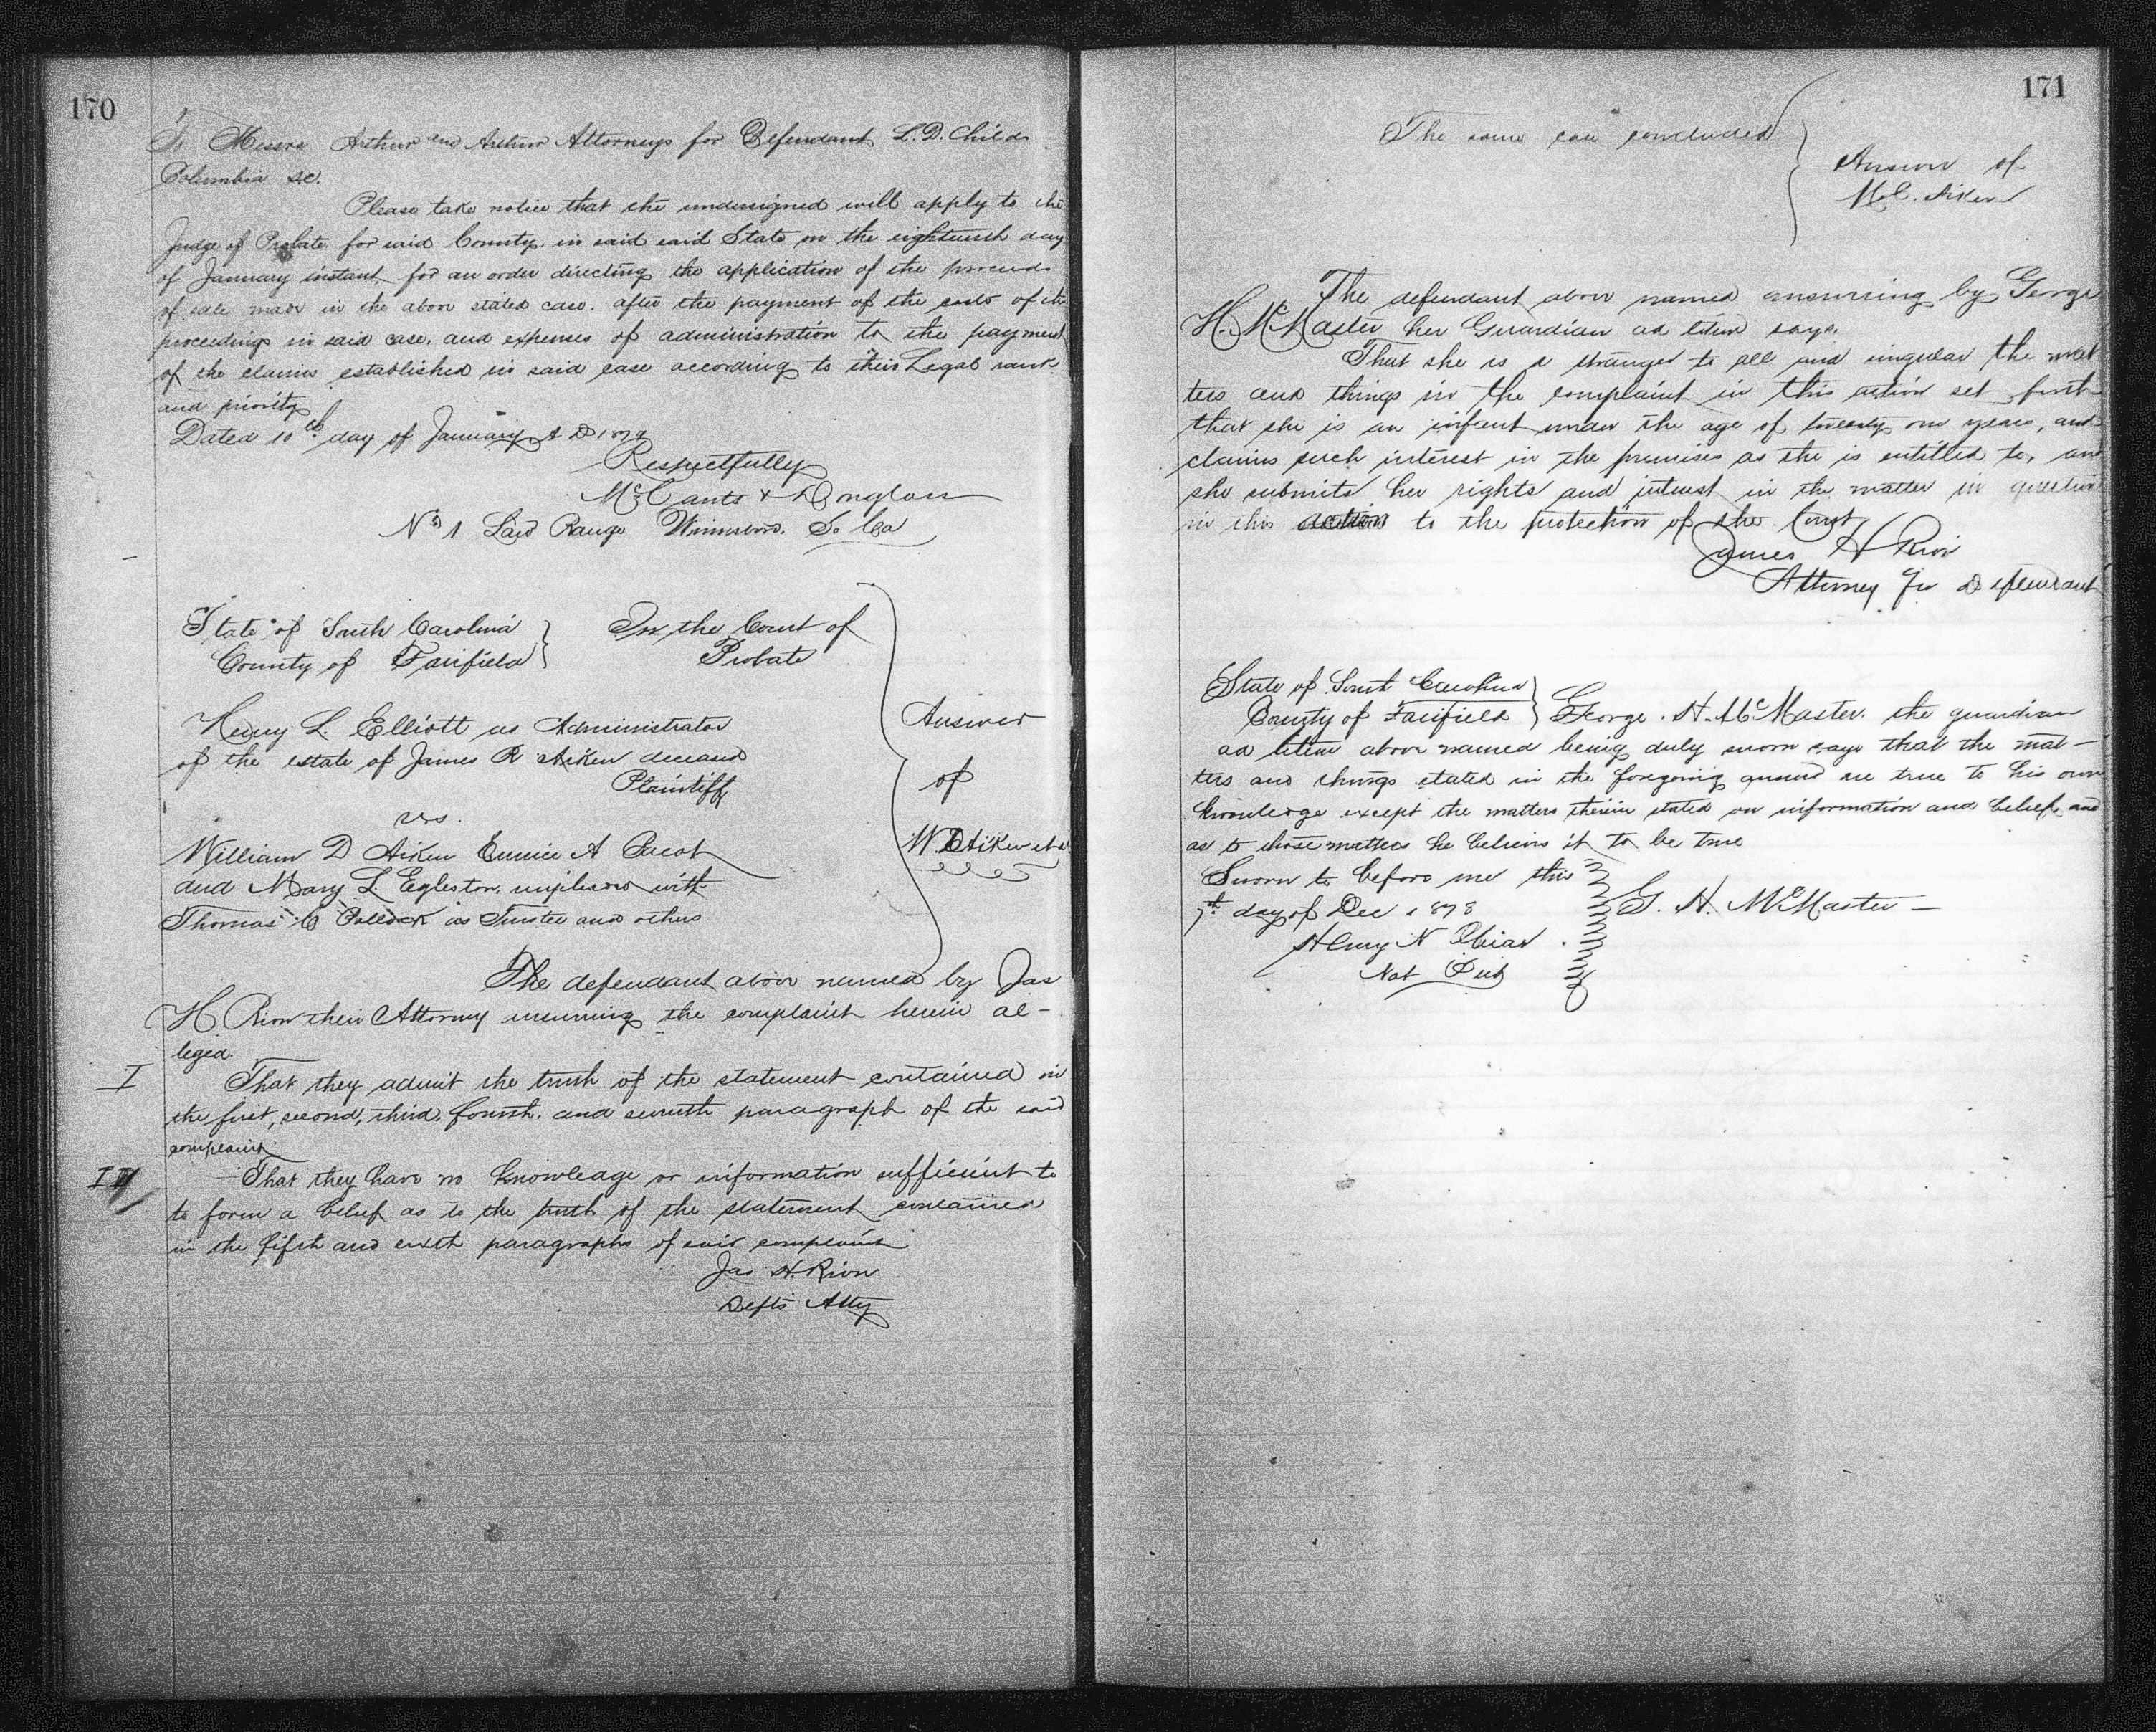 170
To Messrs Arthur and Arthur Attorneys for Defendant L. D. Childs
Columbia S.C.
Please take notice that the undersigned will apply to the
Judge of Probate for said County in said said State on the eighteenth day
of January instant for an order directing the application of the proceeds
of sale made in the above stated case. after the payment of the costs of the
proceedings in said case, and expenses of administration to the payment
of the claims established in said case according to their Legal rank
and priority
Dated 10th day of January A D 1879
Respectfully
McCants & Douglass
No 1 Law Range Winnsboro. So Ca
State of South Carolina
County of Fairfield
In the Court of
Probate
Henry L. Elliott as Administrator
of the estate of James R Aiken deceased
Plaintiff
vs.
William D Aiken Eunice A Bacot
and Mary L Egleston, impleaded with
Thomas C Pollock as Trustee and others
Answer
of
W D Aiken et al
The defendant above named by Jas
H Rion their Attorney answering the complaint herein al-
leged.
I
That they admit the truth of the statement contained in
the first, second, third, fourth. and seventh paragraph of the said
complaint
II
That they have no knowledge or information sufficient to
to form a belief as to the truth of the statement contained
in the fifth and sixth paragraphs of said complaint
Jas H. Rion
Defts Atty
171
The same case concluded
Answer of
M. C. Aiken
The defendant above named answering by George
H. McMaster her Guardian ad litem says.
That she is a stranger to all and singular the mat
ters and things in the complaint in this action set forth
that she is an infant under the age of twenty one years, and
claims such interest in the premises as she is entitled to, and
she submits her rights and interest in the matter in question
in this action to the protection of the Court
James H Rion
Attorney for Defendant
State of South Carolina
County of Fairfield
George. H. McMaster. the guardian
ad litem above named being duly sworn says that the mat-
ters and things stated in the foregoing answer are true to his own
knowledge except the matters therein stated on information and belief, and
as to those matters he believes it to be true
Sworn to before me this
7th day of Dec 1878
Henry N Obear
Not Pub
G. H. McMaster